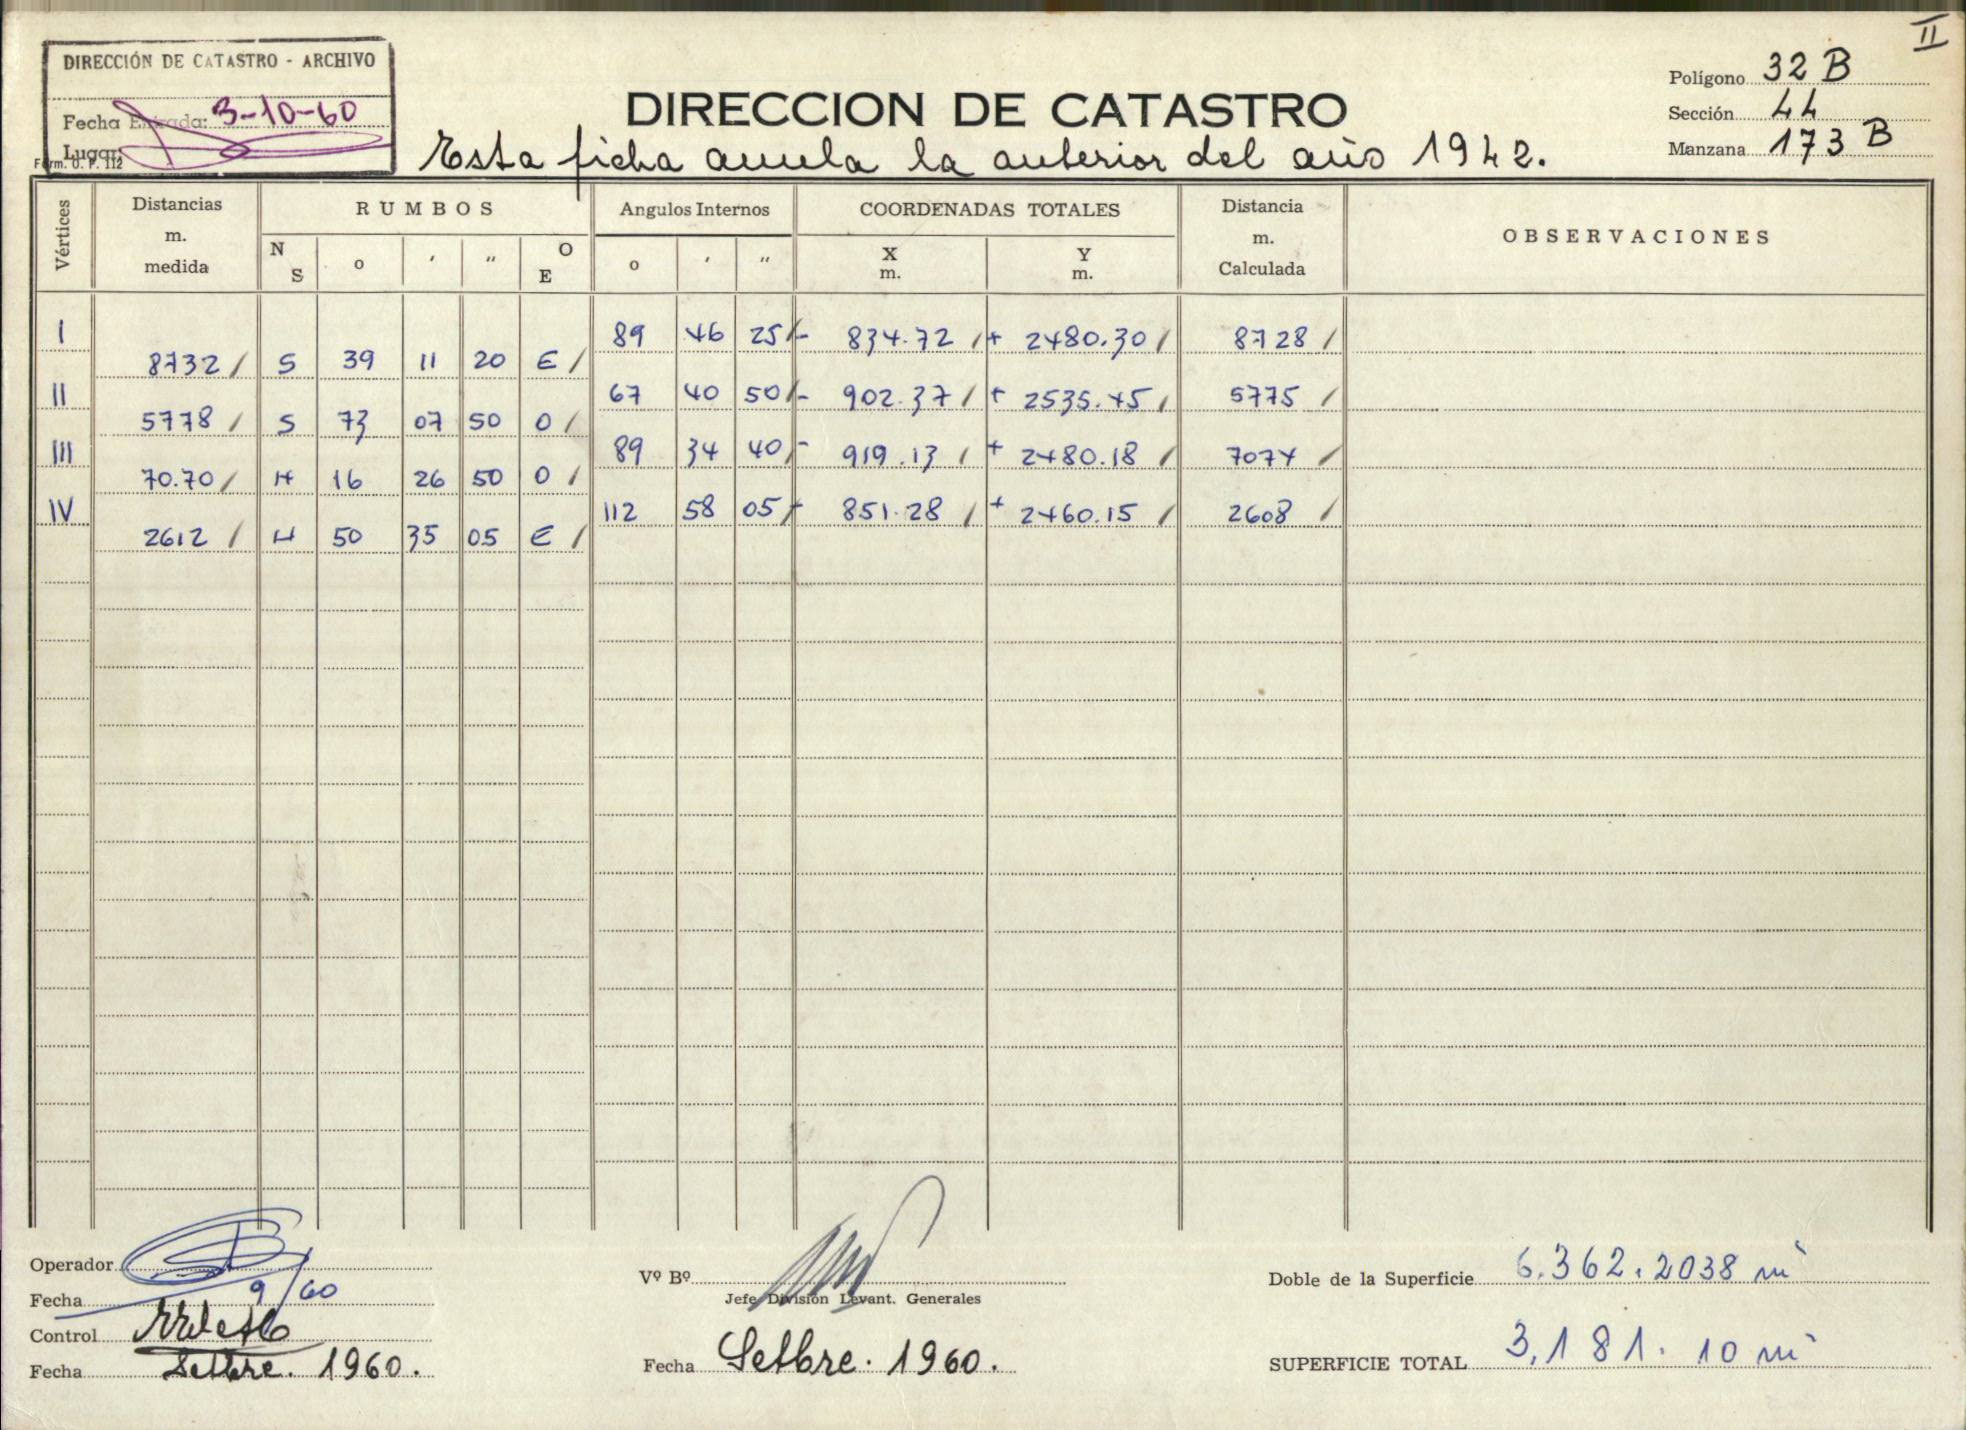 II
DIRECCIÓN DE CATASTRO - ARCHIVO
Fecha Entrada: 3-10-60
Lugar
Form. O. P. 112
DIRECCION DE CATASTRO
Esta ficha anula la anterior del año 1942.
Polígono 32 B
Sección 44
Manzana 173 B
Vértices Distancias m. medida RUMBOS Angulos Internos COORDENADAS TOTALES Distancia m. Calculada OBSERVACIONES
N S o ′ ″ O E o ′ ″ X m. Y m.
I 89 46 25 - 834.72 + 2480.30 8728
8732 S 39 11 20 E
II 67 40 50 - 902.37 + 2535.45 5775
5778 S 73 07 50 O
III 89 34 40 - 919.13 + 2480.18 7074
70.70 N 16 26 50 O
IV 112 58 05 - 851.28 + 2460.15 2608
2612 N 50 35 05 E
Operador
Fecha 9/60
Control
Fecha Setbre. 1960.
Vº Bº
Jefe División Levant. Generales
Fecha Setbre. 1960.
Doble de la Superficie 6.362.2038 m²
SUPERFICIE TOTAL 3,181.10 m²